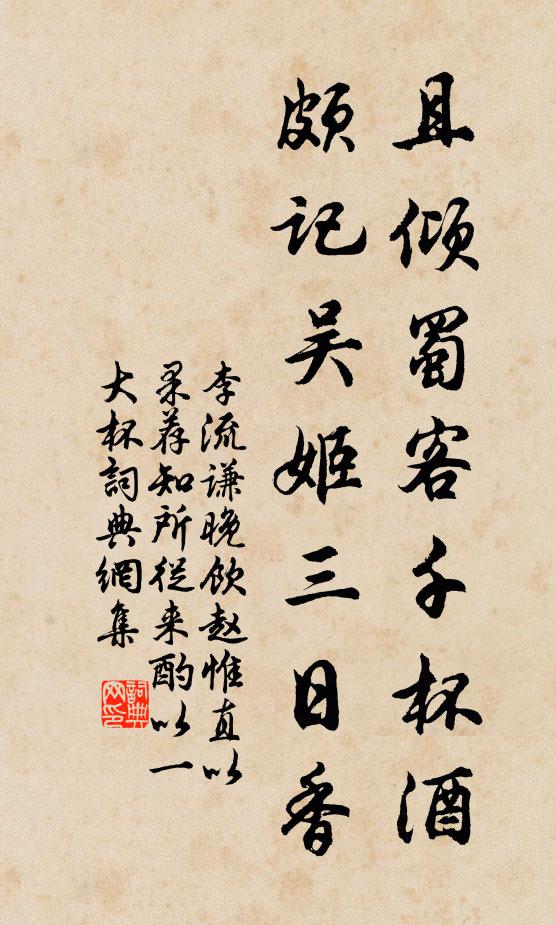 且倾蜀客千杯酒
颇记吴姬三日香
李流谦晚饮赵惟直以
果荐知所从来酌以一
大杯詞典網集
詞典网印